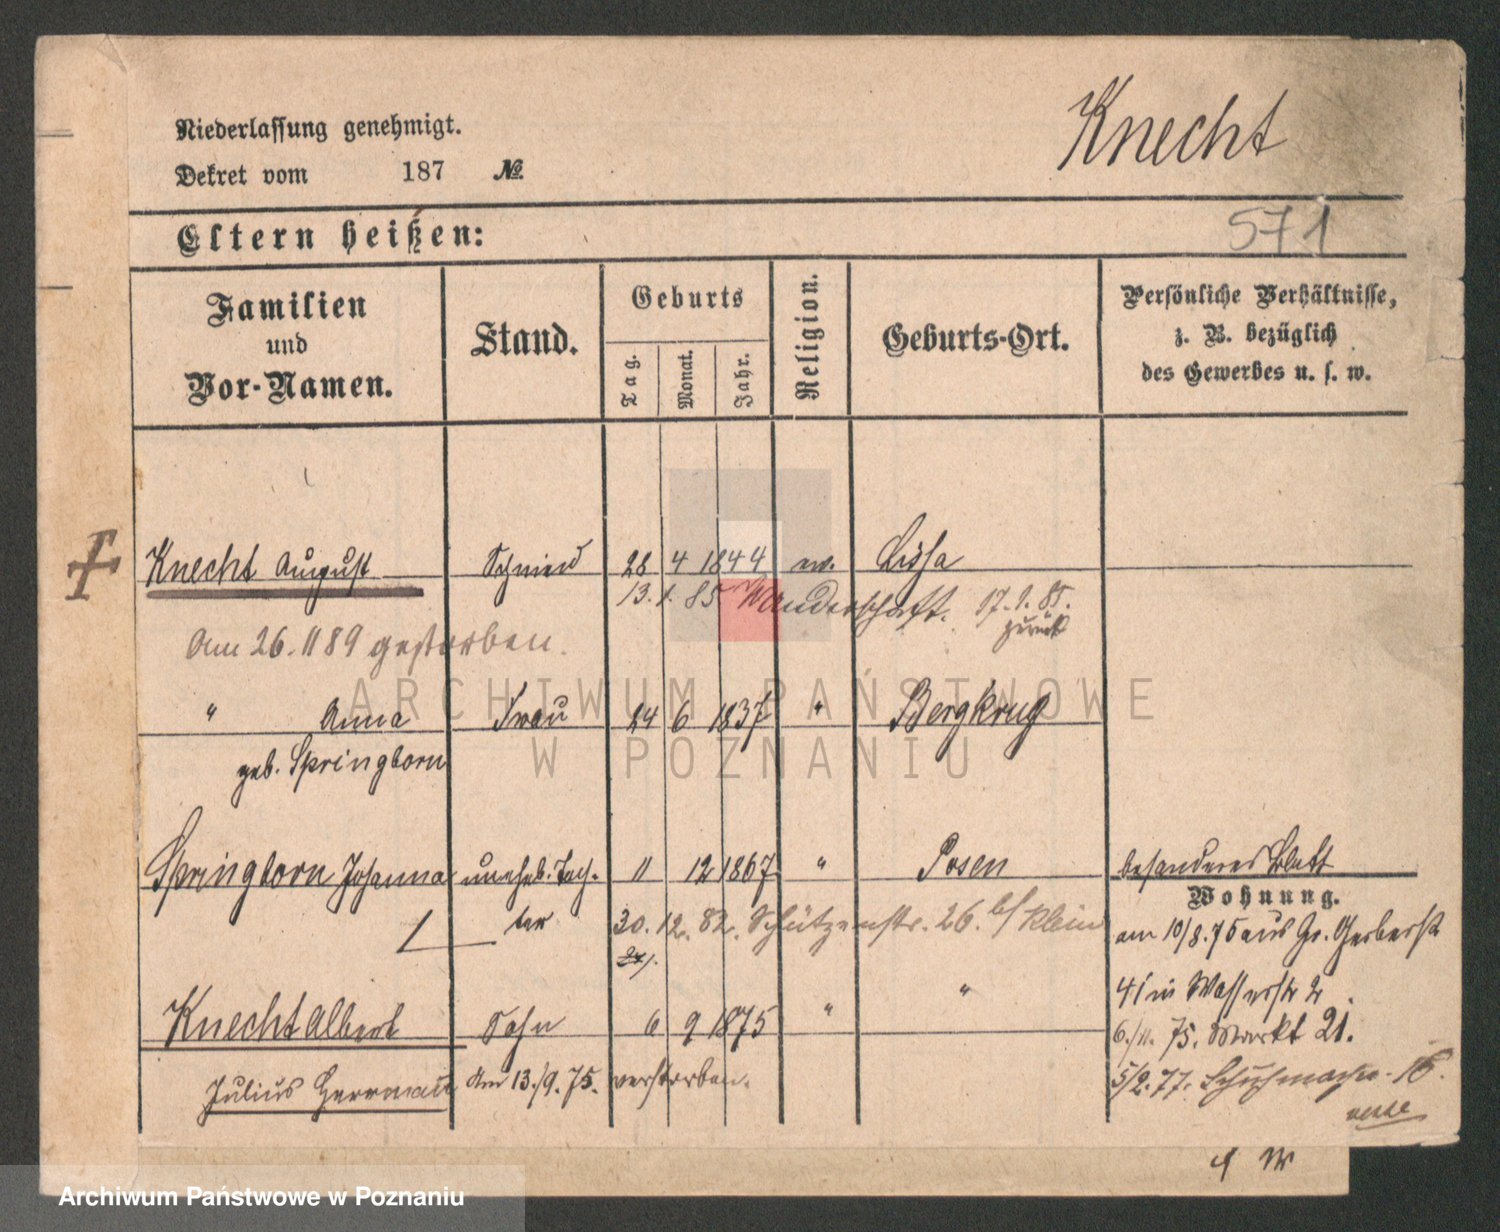 Niederlassung genehmigt.
Dekret vom 187 №.
Knecht
571
Eltern heißen:
Familien und Vor-Namen.
Stand.
Geburts
Tag. Monat. Jahr.
Religion.
Geburts-Ort.
Persönliche Verhältnisse, z. B. bezüglich des Gewerbes u. s. w.
Knecht August Schmied 28 4 1844 ev. Lissa
13. 1. 85 Wanderschaft. 17. 9. 85. zurück
Am 26. 11 89 gestorben.
" Anna Frau 24 6 1837 " Bergkrug
geb. Springborn
Springborn Johanna unehel. Toch- 11 12 1867 " Posen besonderes Blatt
ter
Wohnung.
30. 12. 82. Schützenstr. 26. b/ Klein
am 10/8. 75 aus Gr. Gerberst
41 in Wasserstr 2
Knecht Albert Sohn 6 9 1875 " "
6./11. 75. Markt 21.
Julius Herrmann Am 13./9. 75. verstorben.
5/2. 77. Schuhmacher. 16.
ARCHIWUM PAŃSTWOWE
W POZNANIU
Archiwum Państwowe w Poznaniu